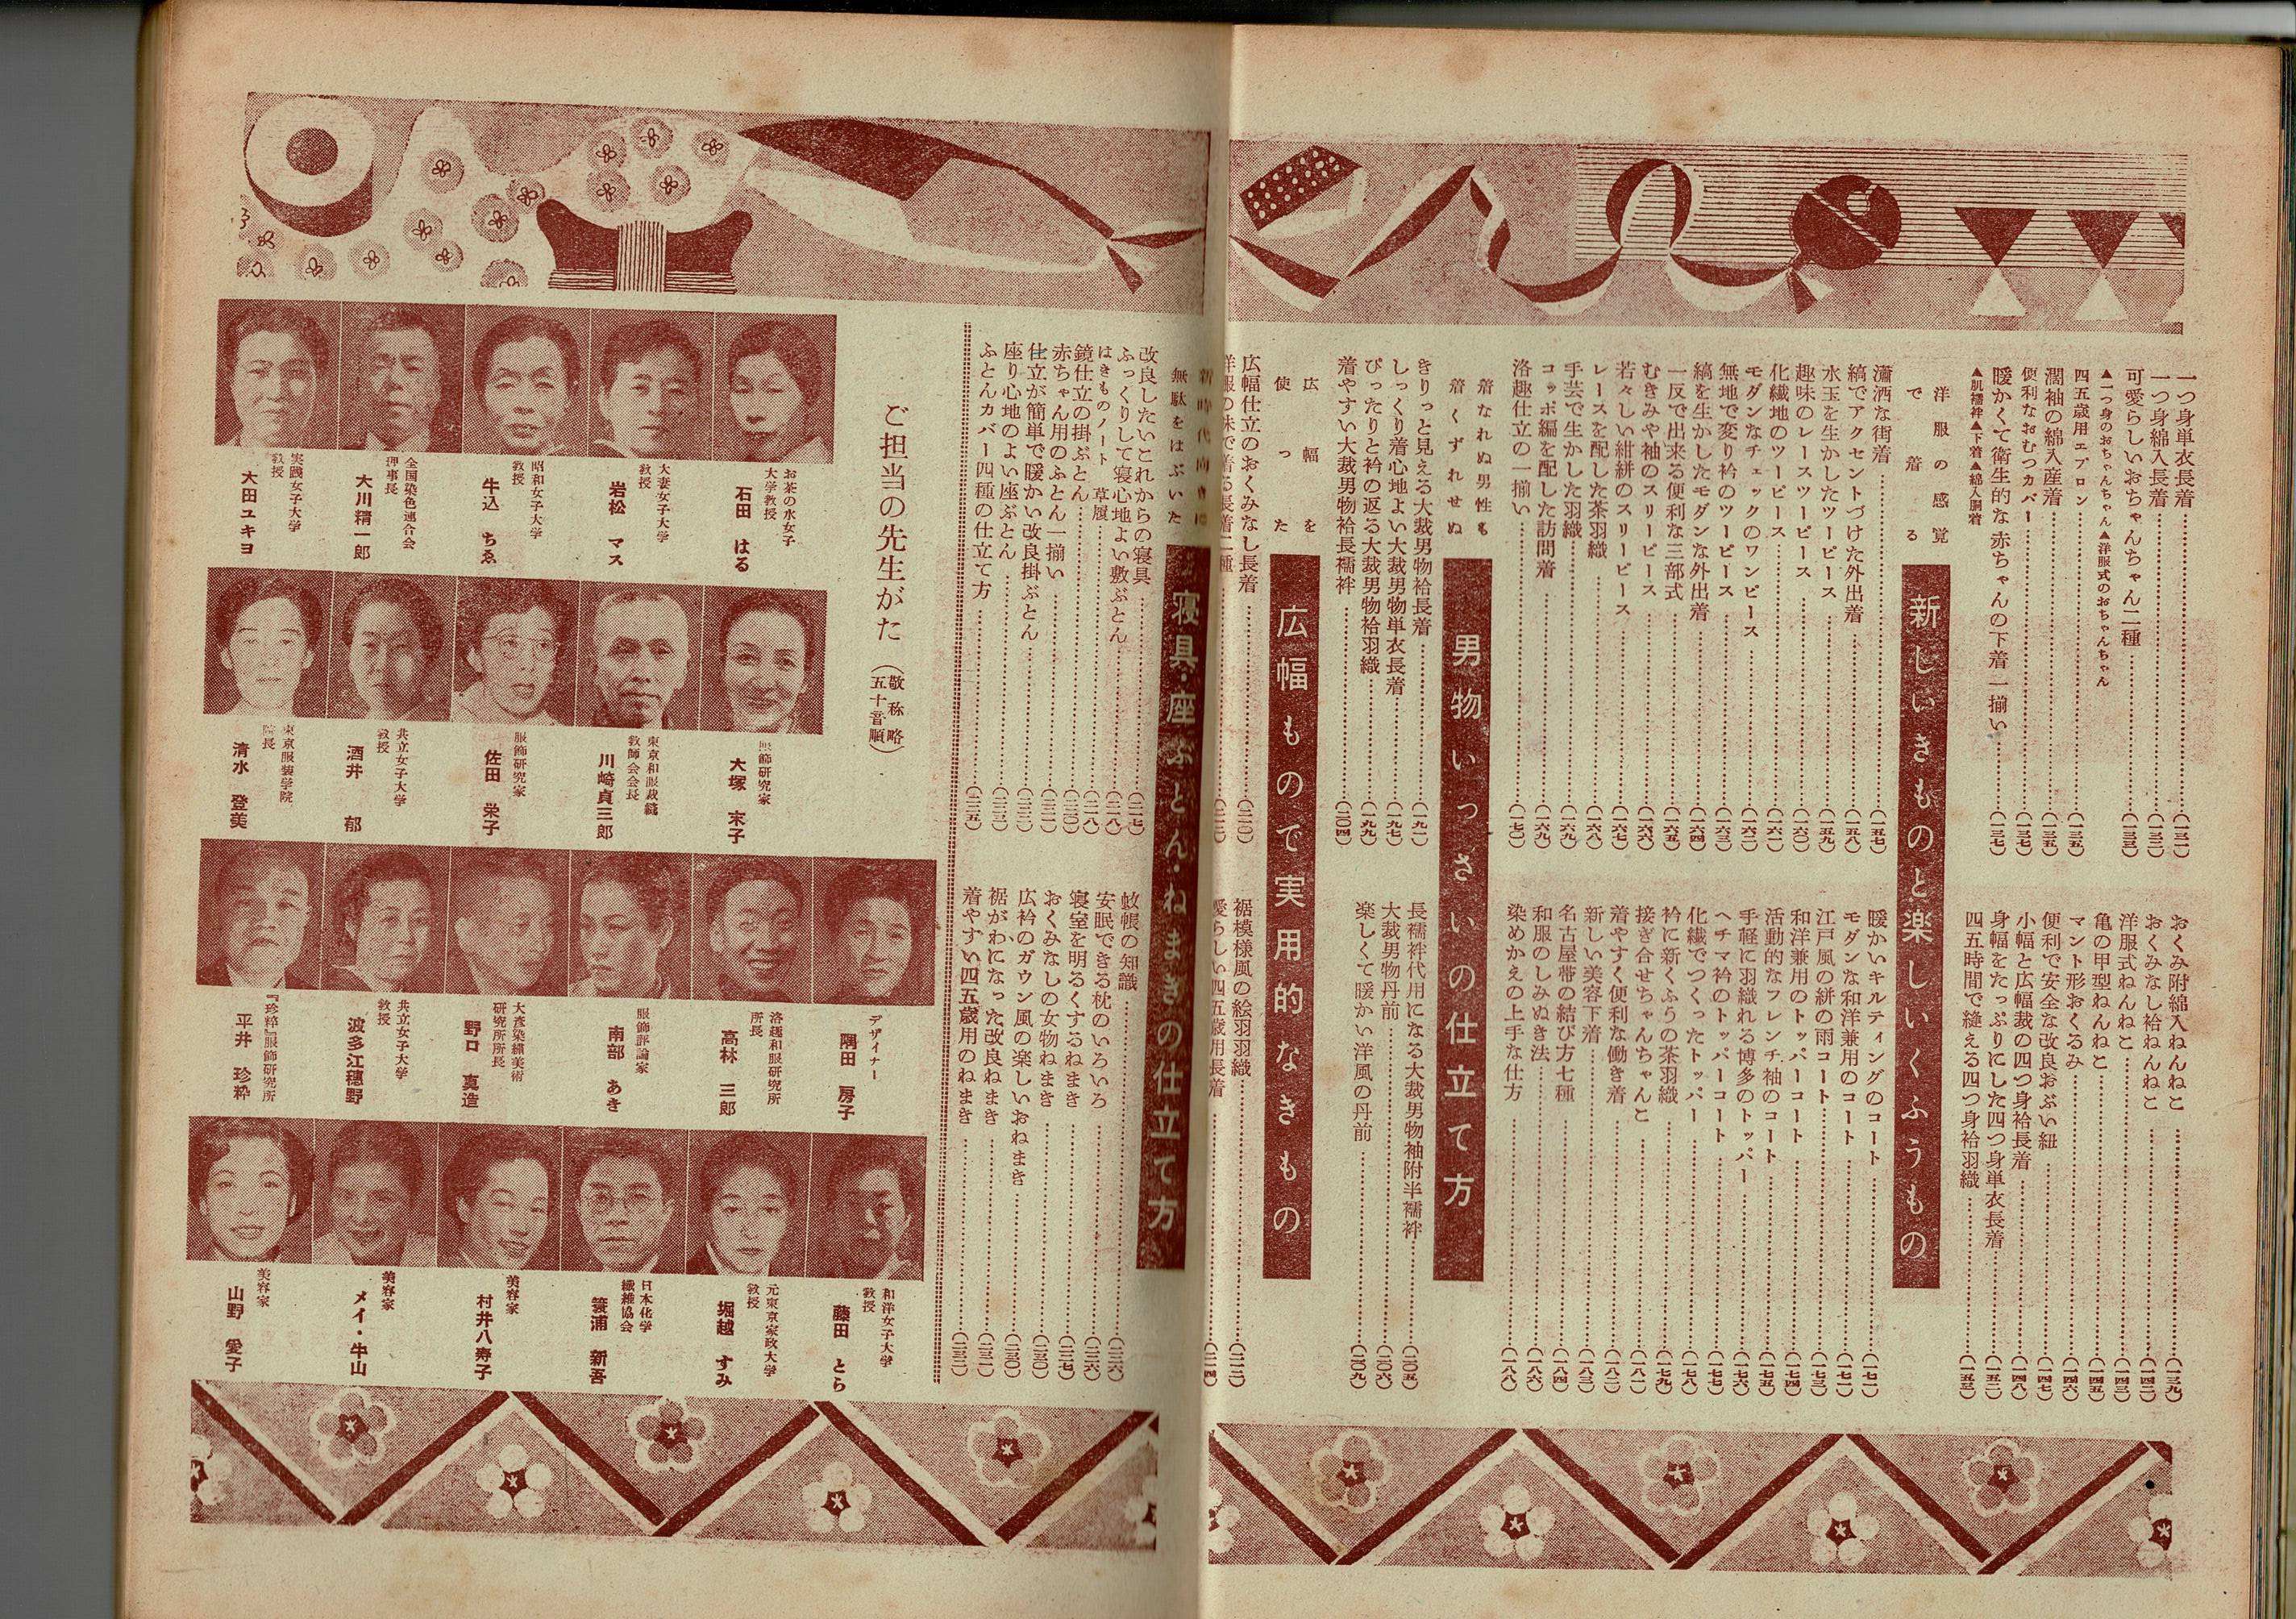 一つ身単衣長着……(一三一)
一つ身綿入長着……(一三二)
可愛らしいおちゃんちゃん二種……(一三三)
▲一つ身のおちゃんちゃん▲洋服式のおちゃんちゃん
四五歳用エプロン……(一三五)
濶袖の綿入産着……(一三五)
便利なおむつカバー……(一三七)
暖かくて衛生的な赤ちゃんの下着一揃い……(一三七)
▲肌襦袢▲下着▲綿入胴着
おくみ附綿入ねんねこ……(一三九)
おくみなし袷ねんねこ……(一四二)
洋服式ねんねこ……(一四三)
亀の甲型ねんねこ……(一四五)
マント形おくるみ……(一四六)
便利で安全な改良おぶい紐……(一四七)
小幅と広幅裁の四つ身袷長着……(一四八)
身幅をたっぷりにした四つ身単衣長着……(一五二)
四五時間で縫える四つ身袷羽織……(一五三)
洋服の感覚
で着る
新しいきものと楽しいくふうもの
瀟洒な街着……(一五七)
縞でアクセントづけた外出着……(一五八)
水玉を生かしたツーピース……(一五九)
趣味のレースツーピース……(一六〇)
化繊地のツーピース……(一六一)
モダンなチェックのワンピース……(一六二)
無地で変り衿のツーピース……(一六三)
縞を生かしたモダンな外出着……(一六四)
一反で出来る便利な三部式……(一六五)
むきみや袖のスリーピース……(一六六)
若々しい紺絣のスリーピース……(一六七)
レースを配した茶羽織……(一六八)
手芸で生かした羽織……(一六九)
コッポ編を配した訪問着……(一六九)
洛趣仕立の一揃い……(一七〇)
暖かいキルティングのコート……(一七一)
モダンな和洋兼用のコート……(一七二)
江戸風の絣の雨コート……(一七三)
和洋兼用のトッパーコート……(一七四)
活動的なフレンチ袖のコート……(一七五)
手軽に羽織れる博多のトッパー……(一七六)
ヘチマ衿のトッパーコート……(一七七)
化繊でつくったトッパー……(一七八)
衿に新くふうの茶羽織……(一七九)
接ぎ合せちゃんちゃんこ……(一八一)
着やすく便利な働き着……(一八二)
新しい美容下着……(一八三)
名古屋帯の結び方七種……(一八四)
和服のしみぬき法……(一八八)
染めかえの上手な仕方……(一八八)
着なれぬ男性も
着くずれせぬ
男物いっさいの仕立て方
きりっと見える大裁男物袷長着……(一九一)
しっくり着心地よい大裁男物単衣長着……(一九七)
ぴったりと衿の返る大裁男物袷羽織……(一九九)
着やすい大裁男物袷長襦袢……(二〇四)
長襦袢代用になる大裁男物袖附半襦袢……(二〇五)
大裁男物丹前……(二〇六)
楽しくて暖かい洋風の丹前……(二〇九)
広幅を
使った
広幅もので実用的なきもの
広幅仕立のおくみなし長着……(二一〇)
洋服の味で着る長着二種……
裾模様風の絵羽羽織……(二一二)
愛らしい四五歳用長着……(二一四)
新時代向きに
無駄をはぶいた
寝具・座ぶとん・ねまきの仕立て方
改良したいこれからの寝具……(二一七)
ふっくりして寝心地よい敷ぶとん……(二一八)
はきものノート 草履……(二一八)
鏡仕立の掛ぶとん……(二二〇)
赤ちゃん用のふとん一揃い……(二二一)
仕立が簡単で暖かい改良掛ぶとん……(二二三)
座り心地のよい座ぶとん……(二二三)
ふとんカバー四種の仕立て方……(二二五)
蚊帳の知識……(二二六)
安眠できる枕のいろいろ……(二二六)
寝室を明るくするねまき……(二二七)
おくみなしの女物ねまき……(二三〇)
広衿のガウン風の楽しいおねまき……(二三〇)
裾がわになった改良ねまき……(二三一)
着やすい四五歳用のねまき……(二三二)
ご担当の先生がた(敬称略 五十音順)
お茶の水女子大学教授
石田 はる
大妻女子大学教授
岩松 マス
昭和女子大学教授
牛込 ちゑ
全国染色連合会理事長
大川精一郎
実践女子大学教授
大田ユキヨ
服飾研究家
大塚 末子
東京和服裁縫教師会会長
川崎貞三郎
服飾研究家
佐田 栄子
共立女子大学教授
酒井 郁
東京服装学院院長
清水 登美
デザイナー
隅田 房子
洛趣和服研究所所長
高林 三郎
服飾評論家
南部 あき
大彦染繍美術研究所所長
野口 真造
共立女子大学教授
波多江穂野
『珍粋』服飾研究所
平井 珍粋
和洋女子大学教授
藤田 とら
元東京家政大学教授
堀越 すみ
日本化学繊維協会
簑浦 新吾
美容家
村井八寿子
美容家
メイ・牛山
美容家
山野 愛子